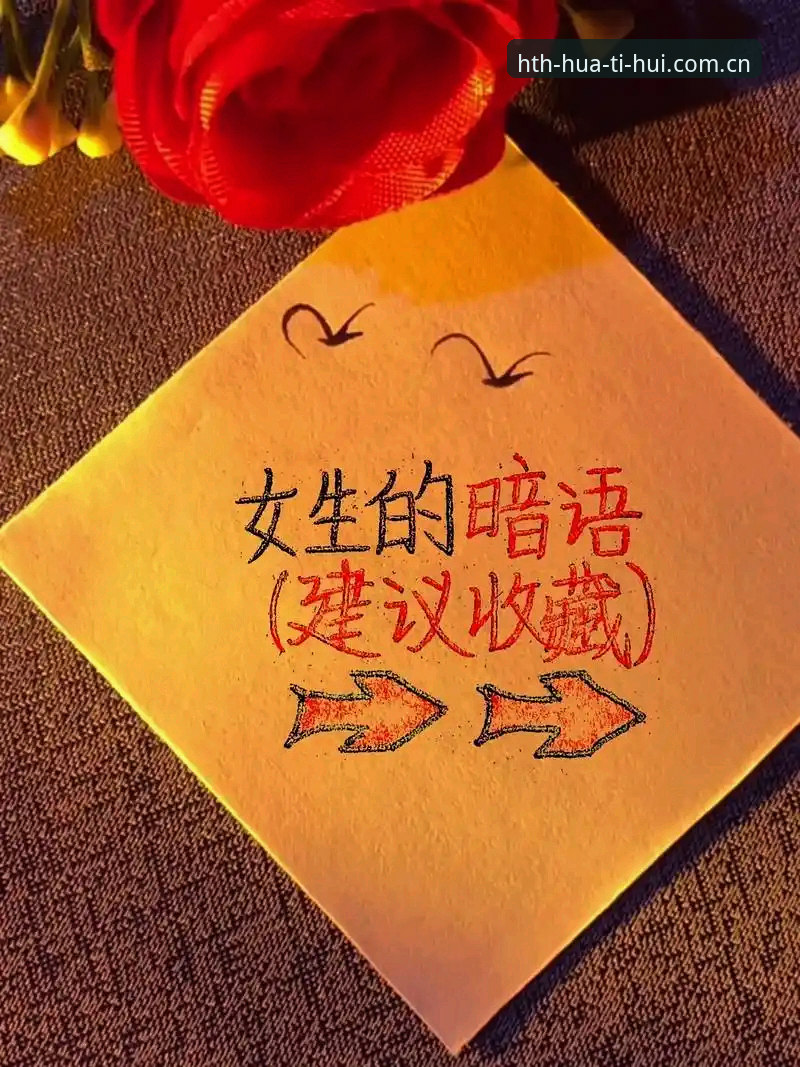 hth-hua-ti-hui.com.cn
女生的暗语
(建议收藏)